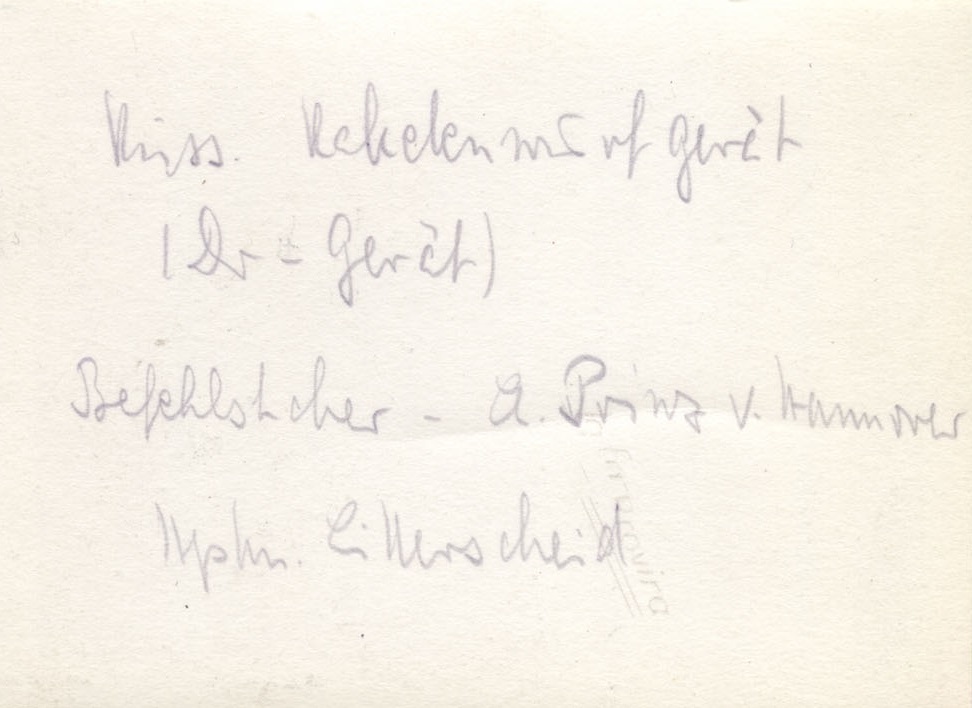 Russ. Raketenwurfgerät
(Do-Gerät)
Befehlshaber - A. Prinz v. Hannover
Hptm. Litterscheid